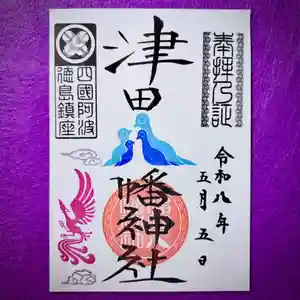 奉拝之証
津田
八幡神社
四國阿波
徳島鎮座
令和八年
五月五日